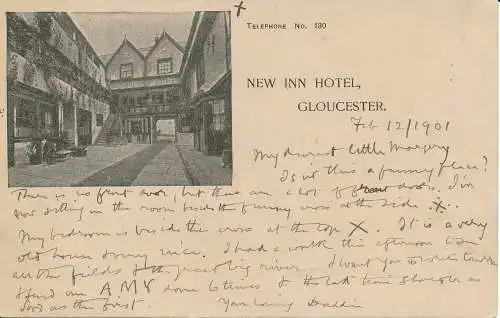 x
TELEPHONE NO. 130
NEW INN HOTEL,
GLOUCESTER.
Feb 12/1901
My dearest little Margery
Is n't this a funny place?
There is no front door, but there are a lot of doors. I'm
now sitting in the room beside the funny cross at the side x.
My bedroom is beside the cross at the top X. It is a very
old house & very nice. I had a walk this afternoon to see
all the fields & the great big river. I want you to
send me down to the last time
soon as the first. Your loving Daddie